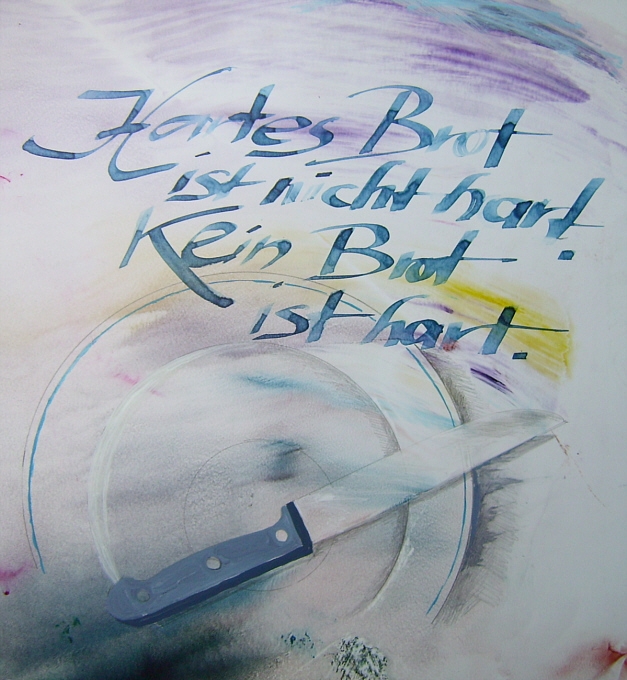 Hartes Brot
ist nicht hart.
Kein Brot
ist hart.